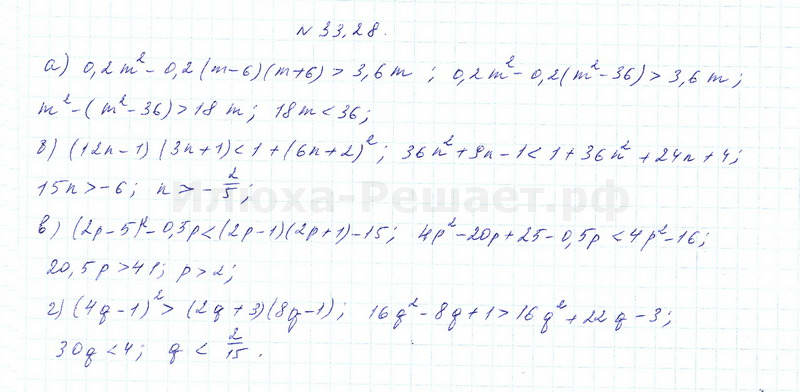 N 33.28.
а) 0,2m² - 0,2(m-6)(m+6) > 3,6m ; 0,2m² - 0,2(m²-36) > 3,6m;
m² - (m²-36) > 18m; 18m < 36;
б) (12n-1)(3n+1) < 1 + (6n+2)²; 36n² + 9n - 1 < 1 + 36n² + 24n + 4;
15n > -6; n > -2/5;
Илюха-Решает.рф
в) (2p-5)² - 0,5p < (2p-1)(2p+1) - 15; 4p² - 20p + 25 - 0,5p < 4p² - 16;
20,5p > 41; p > 2;
г) (4q-1)² > (2q+3)(8q-1); 16q² - 8q + 1 > 16q² + 22q - 3;
30q < 4; q < 2/15.